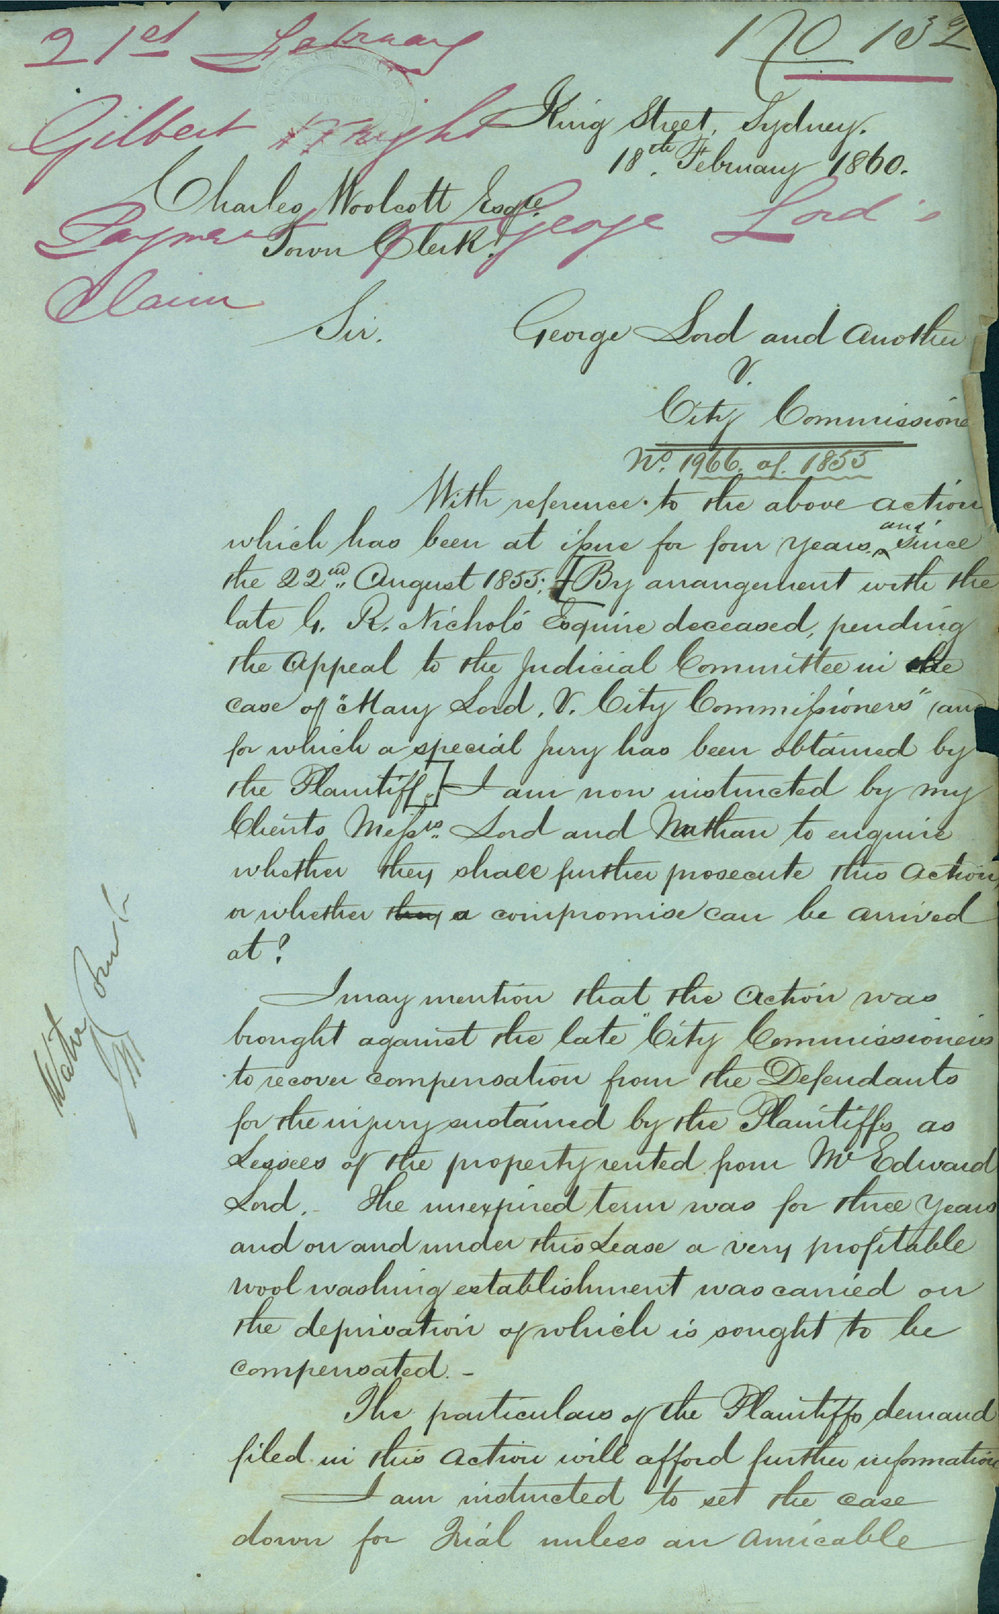 21st February
No 132
Gilbert Wright
King Street, Sydney.
18th February 1860.
Charles Woolcott Esqre.
Payment of George Lord's
Town Clerk.
Claim
Sir.
George Lord and Another
V.
City Commissione
No. 1966. of. 1855
With reference to the above action
which has been at issue for four years, and since
the 22nd August 1855; [By arrangement with the
late G. R. Nichols Esquire deceased, pending
the Appeal to the Judicial Committee in the
case of "Mary Lord. V. City Commissioners" (and
for which a special Jury has been obtained by
the Plaintiff.] I am now instructed by my
Clients Messrs. Lord and Nathan to enquire
whether they shall further prosecute this Action,
or whether they a compromise can be arrived
at?
I may mention that the Action was
brought against the late "City Commissioners
to recover compensation from the Defendants
for the injury sustained by the Plaintiffs as
Lessees of the property rented from Mr Edward
Lord. - The unexpired term was for three years
and on and under this Lease a very profitable
wool washing establishment was carried on
the deprivation of which is sought to be
compensated. -
The particulars of the Plaintiffs demand
filed in this Action will afford further information
I am instructed to set the case
down for Trial unless an amicable
Water